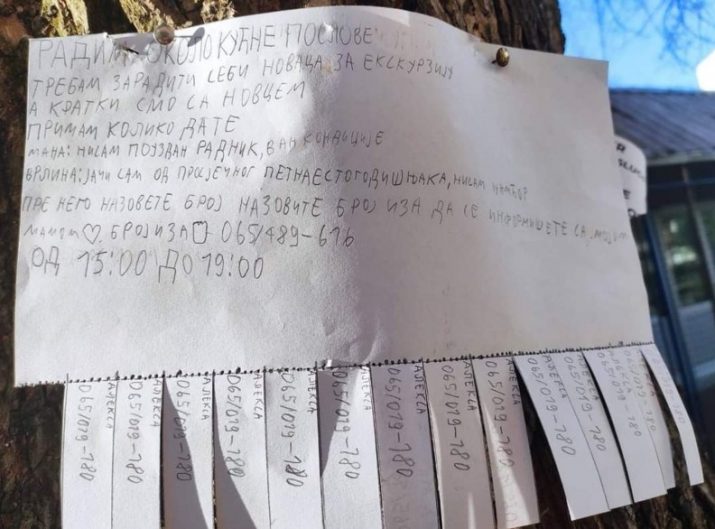 РАДИМ ОКОЛО КУЋНЕ ПОСЛОВЕ
ТРЕБАМ ЗАРАДИТИ СЕБИ НОВАЦА ЗА ЕКСКУРЗИЈУ
А КРАТКИ СМО СА НОВЦЕМ
ПРИМАМ КОЛИКО ДАТЕ
МАНА: НИСАМ ПОУЗДАН РАДНИК, ВАН КОНДИЦИЈЕ
ВРЛИНА: ЈАЧИ САМ ОД ПРОСЈЕЧНОГ ПЕТНАЕСТОГОДИШЊАКА, НИСАМ
ПРЕ НЕГО НАЗОВЕТЕ БРОЈ НАЗОВИТЕ БРОЈ ИЗА ДА СЕ ИНФОРМИШЕТЕ СА МОЈОМ
МАМОМ♡. БРОЈ ИЗА 065/489-616
ОД 15:00 ДО 19:00
АЛЕКСА
065/019-780
АЛЕКСА
065/019-780
АЛЕКСА
065/019-780
АЛЕКСА
065/019-780
АЛЕКСА
065/019-780
АЛЕКСА
065/019-780
АЛЕКСА
065/019-780
АЛЕКСА
065/019-780
АЛЕКСА
065/019-780
АЛЕКСА
065/019-780
АЛЕКСА
065/019-780